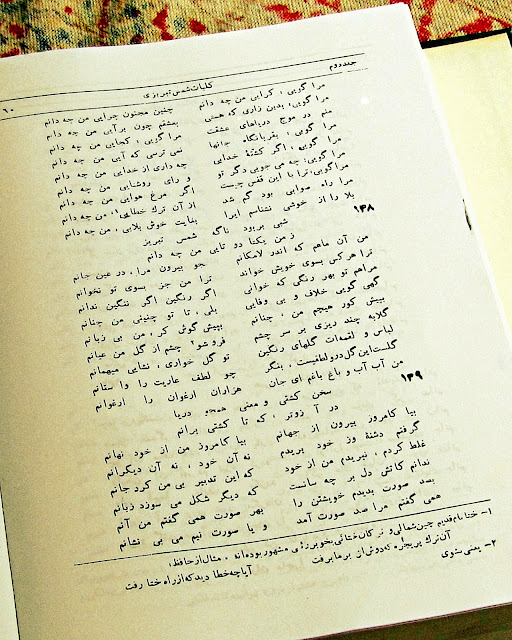 جلد دوم کلیات شمس تبریزی ۶۰
مرا گویی، کرایی من چه دانم چنین مجنون چرایی من چه دانم
مرا گویی؛ بدین زاری که هستی بعشقم چون برآیی من چه دانم
منم در موج دریاهای عشقت مرا گویی، کجایی من چه دانم
مرا گویی، بقربانگاه جانها نمی ترسی که آیی من چه دانم
مرا گویی، اگر کشتهٔ خدایی چه داری از خدایی من چه دانم
مرا گویی؛ چه می جویی دگر تو و رای روشنایی من چه دانم
مرا گویی؛ ترا با این قفس چیست اگر مرغ هوایی من چه دانم
مرا راه صوابی بود گم شد از آن ترک خطایی۱، من چه دانم
بلا را از خوشی نشناسم ایرا بغایت خوش بلایی، من چه دانم
شبی بربود ناگه شمس تبریز
ز من یکتا دو تایی من چه دانم
۱۳۸
من آن ماهم که اندر لامکانم مجو بیرون مرا، در عین جانم
ترا هرکس بسوی خویش خواند ترا من جز بسوی تو نخوانم
مراهم تو بهر رنگی که خوانی اگر رنگین اگر ننگین ندانم
گهی گویی خلاف و بی وفایی بلی، تا تو چنینی من چنانم
بپیش کور هیچم من، چنانم بپیش گوش کر، من بی زبانم
گلابه چند ریزی بر سر چشم فرو شو۲ چشم از گل من عیانم
لباس و لقمه‌ات گلهای رنگین تو گل خواری، نشایی میهمانم
گلست این گل درو لطفیست، بنگر چو لطف عاریت را وا ستانم
من آب آب و باغ باغم ای جان هزاران ارغوان را ارغوانم
سخن کشتی و معنی همچو دریا
در آ زوتر، که تا کشتی برانم
۱۳۹
بیا کامروز بیرون از جهانم بیا کامروز من از خود نهانم
گرفتم دشنهٔ وز خود بریدم نه آن خود، نه آن دیگرانم
غلط کردم، نبریدم من از خود که این تدبیر بی من کرد جانم
ندانم کاتش دل بر چه سانست که دیگر شکل می سوزد زبانم
بصد صورت بدیدم خویشتن را بهر صورت همی گفتم من آنم
همی گفتم مرا صد صورت آمد و یا صورت نیم می بی نشانم
۱- ختا نام قدیم چین شمالی و ترکان ختائی بخوبروئی مشهور بوده‌اند. مثال از حافظ:
آن ترک پریچهره که دوش از بر ما برفت آیا چه خطا دید که از راه ختا رفت
۲- یعنی بشوی